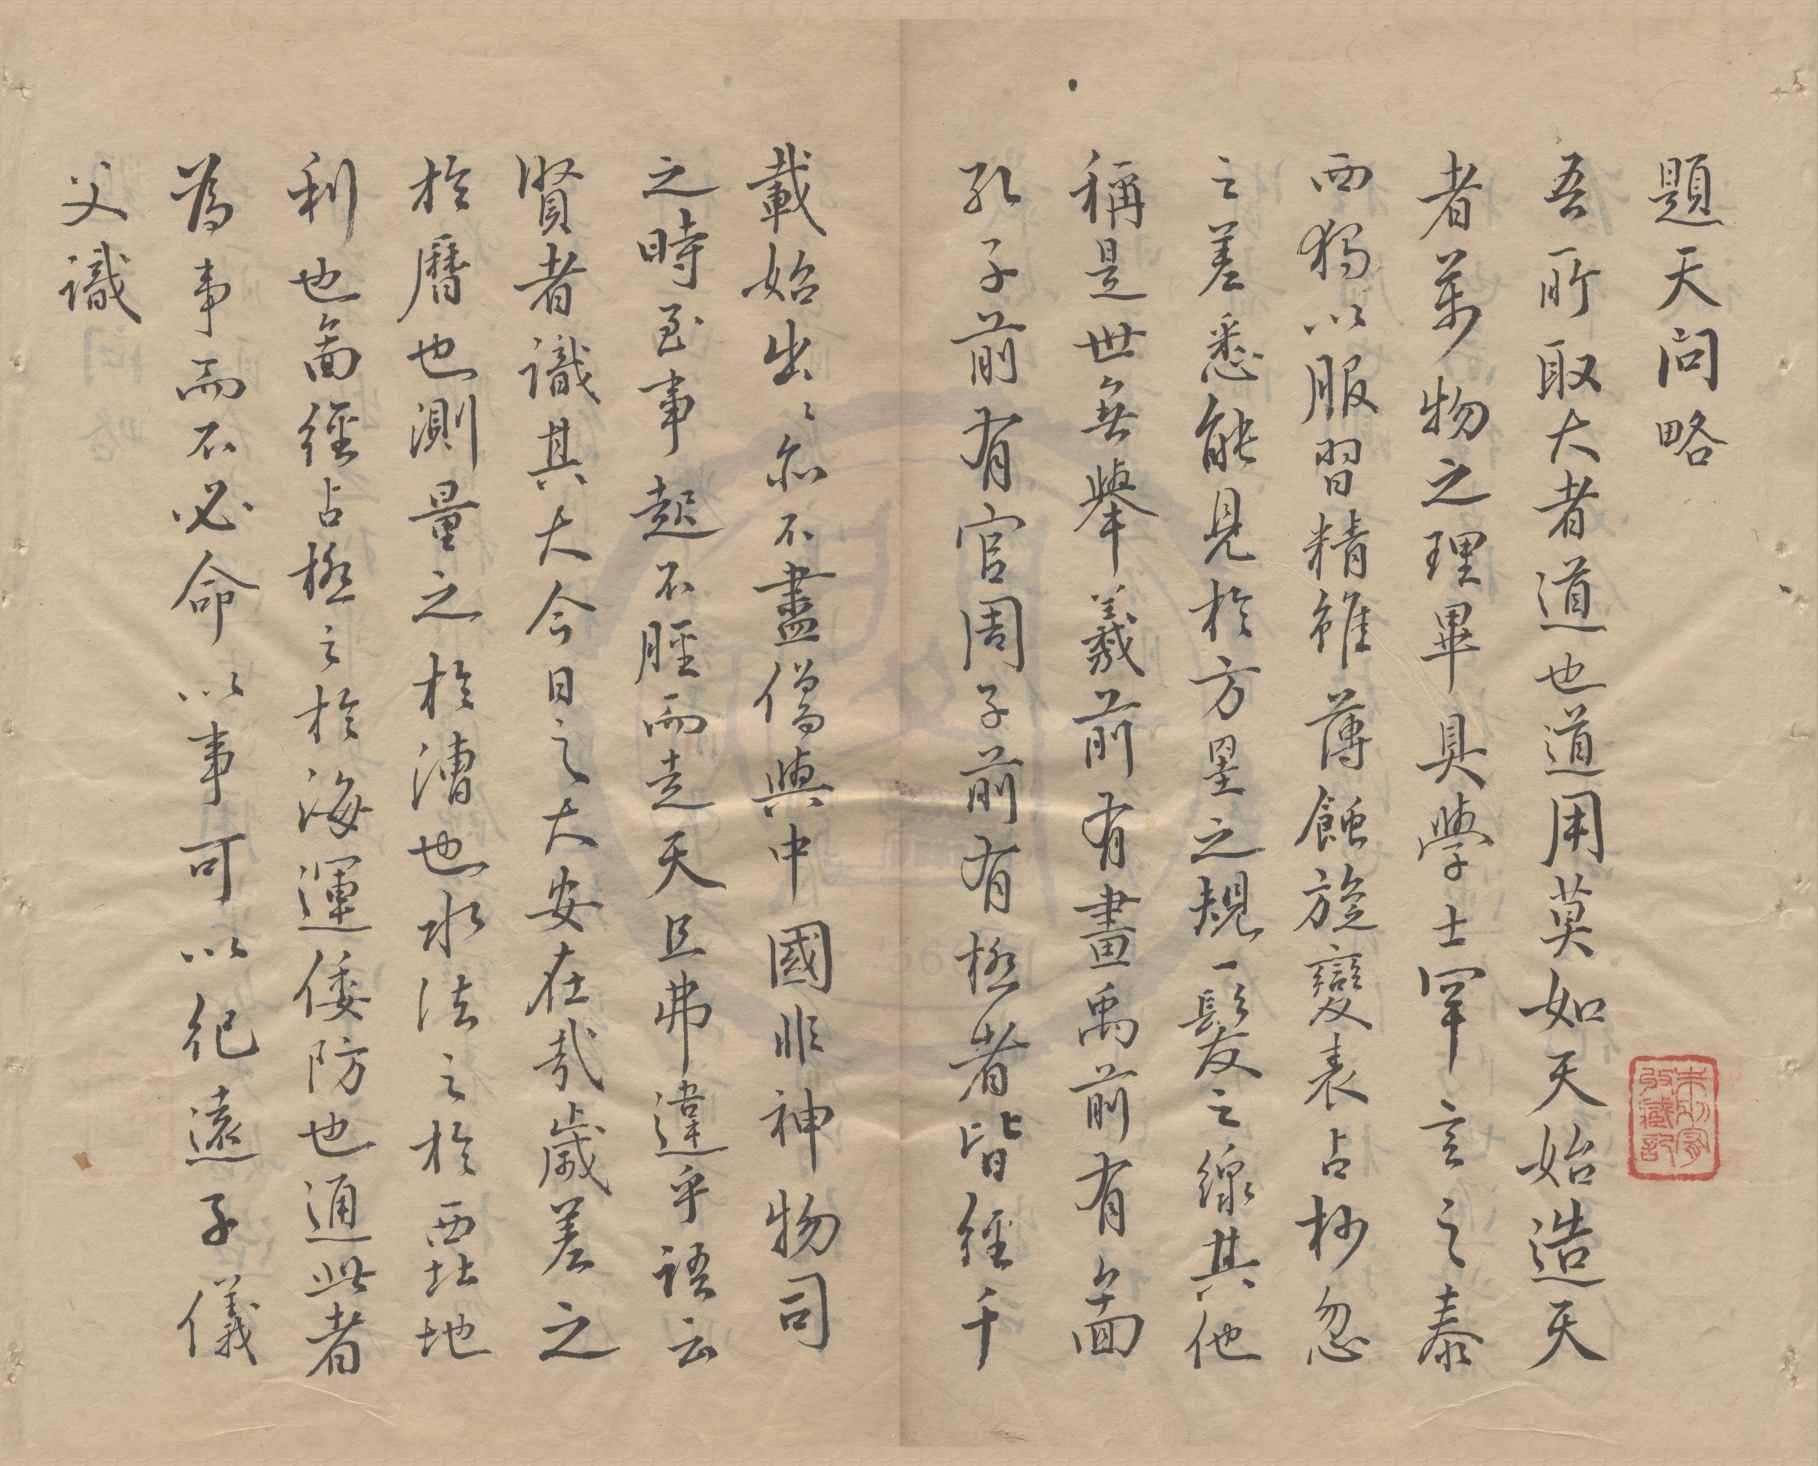 題天問略
吾所取大者道也道用莫如天始造天
者萬物之理畢具學士罕言之泰
西獨以服習精雖薄蝕旋變表占杪忽
之差悉能見於方罣之規一髮之線其他
稱是世無舉羲前有畫禹前有面
孔子前有官周子前有極者皆經千
載始出出亦不盡僞與中國非神物司
之時至事起不脛而走天且弗違乎語云
賢者識其大今日之大安在哉歲差之
於曆也測量之於漕也水法之於西北地
利也啚經占極之於海運倭防也通此者
為事而不必命以事可以紀遠子儀
父識